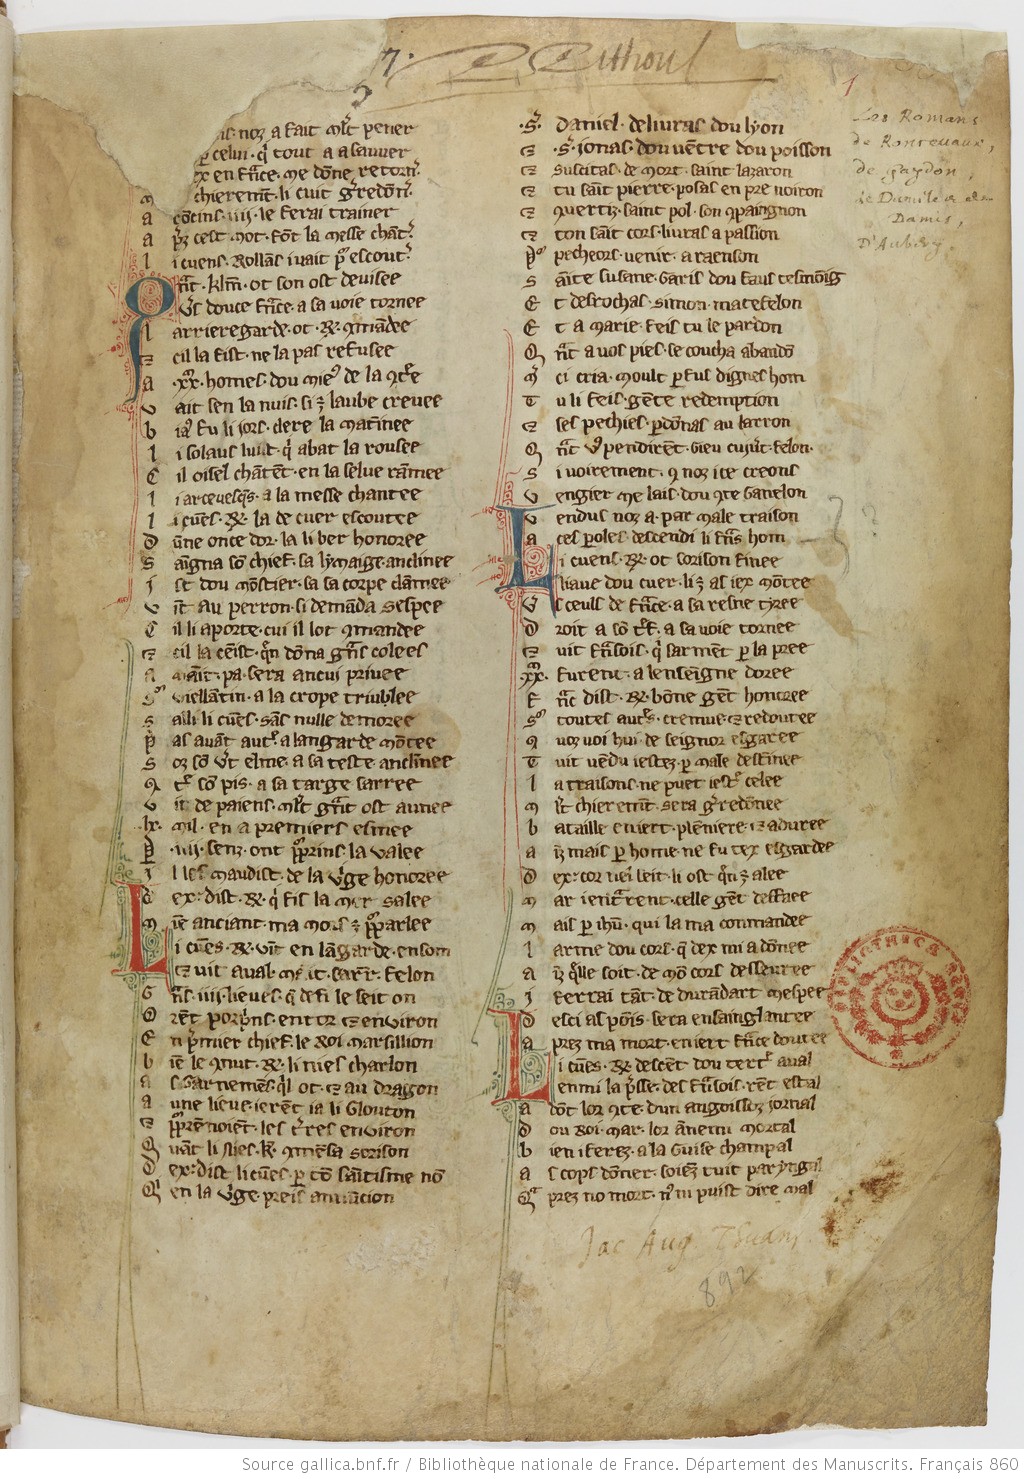 7. P Pithou
1
Les Romans
de Roncevaux,
de Gaydon,
de Damile & de
Damis,
D'Auberj.
noz a fait mlt pener
p celui q tout a a sauuer
en fnce me done retorn
chieremt li cuit gredon
a contins iiij le ferai trainer
a pz cest mot font la messe chant
l i cuens Rollans i vait p escout
Qnt klm ot son ost deuisee
Vs douce fnce a sa voie tornee
l arrieregarde ot R 9mandee
⁊ cil la fist ne la pas refusee
a xx homes dou mieus de la 9tree
v ait sen la nuis si ē laube creuee
b ia fu li jors clere la matinee
l i solaus luist q abat la rousee
C il oisel chantent en la selue ramee
l i arceuesqs a la messe chantee
l i cuens R la de cuer escoutee
D une once dor la li ber honoree
s aingna son chief sa lymaige anclinee
i st dou mostier sa sa corpe clamee
v int au perron si demanda sespee
C il li aporte cui il lot 9mandee
⁊ cil la ceinst qn dona gns colees
viellantin a la crope triublee
s alli li cuens sans nulle demoree
p as auant autre a langarde montee
s oz son vt elme a sa teste anclinee
9 tre son pis a sa targe serree
v it de paiens mlt gnt ost aunee
lx mil en a premiers esmee
P iiij senz ont pprins la valee
i l les maudist de la vge honoree
D ex dist R q fis la mer salee
L i cuens R vint en langarde en som
⁊ vit aual felon
G ns iiij lieues q defi le seit on
O rent porpns entor ⁊ environ
E n pmier chief le Roi marsillion
b ien le 9nut R li nies charlon
a s garnemens ql ot ⁊ au dragon
a une lieue ierent ia li glouton
⁊ pprenoient les tres environ
Q uant li nies k 9mensa sorison
D ex dist li cuens p ton saintisme non
Q i en la vge preis anuncion
⁊ s daniel deliuras dou lyon
⁊ s ionas dou ventre dou poisson
⁊ suscitas de mort saint lazaron
⁊ tu saint pierre posas en pre noiron
⁊ 9uertiz saint pol son 9paingnon
⁊ ton saint cors liuras a passion
P o pecheors venir a raenson
s ainte susane garis dou faus tesmoig
E t desrochas simon mategelon
E t a marie feis tu le pardon
Q nt a vos pies se coucha abandon
m ci cria moult p fus dignes hom
T u li feis gente redemption
⁊ ses pechies pdonas au larron
Q nt vs pendirent gieu cuiuert felon
s i voirement 9 noz ice creons
v engier me lais dou 9te ganelon
v endus noz a par male traison
a ces paroles descendi li frans hom
L i cuens R ot sorison finee
l iaue dou cuer li ē as iex montee
V s ceuls de fnce a sa resne tyree
D roit a son tref a sa voie tornee
⁊ vit fnsois q sarment p la pree
xx furent a lenseingne doree
F nc dist R bone gent honoree
s or toutes autres cremue ⁊ redoutee
9 uoz voi hui de seignor esgaree
T uit vendu iestez p male destinee
l a traisons ne puet iestre celee
m lt chieremt sera gredonnee
b ataille en iert pleniere ⁊ aduree
a inz mais p home ne fu tex esgardee
D ex cor uei leit li ost qn ē alee
m ar i entrrent celle gent deffaee
m ais p ihu qui la ma commandee
l arme dou cors q dex mi a donee
a inz qlle soit de mon cors desseuree
i ferrai tant de durandart mespee
D esci as poins sera ensainglantee
a prez ma mort en iert fnce doutee
L i cuens R descent dou tertre aual
l enmi la presse des fnsois rent estal
a dont lor 9te dun angoissoz jornal
D ou Roi mar lor anemi mortal
b ien i ferez a la guise champal
a s cops doner soiez tuit paryngal
Q a prez no mort nus n i puist dire mal
Jac Aug Thuani
892
BIBLIOTHECA REGIA
Source gallica.bnf.fr / Bibliothèque nationale de France. Département des Manuscrits. Français 860